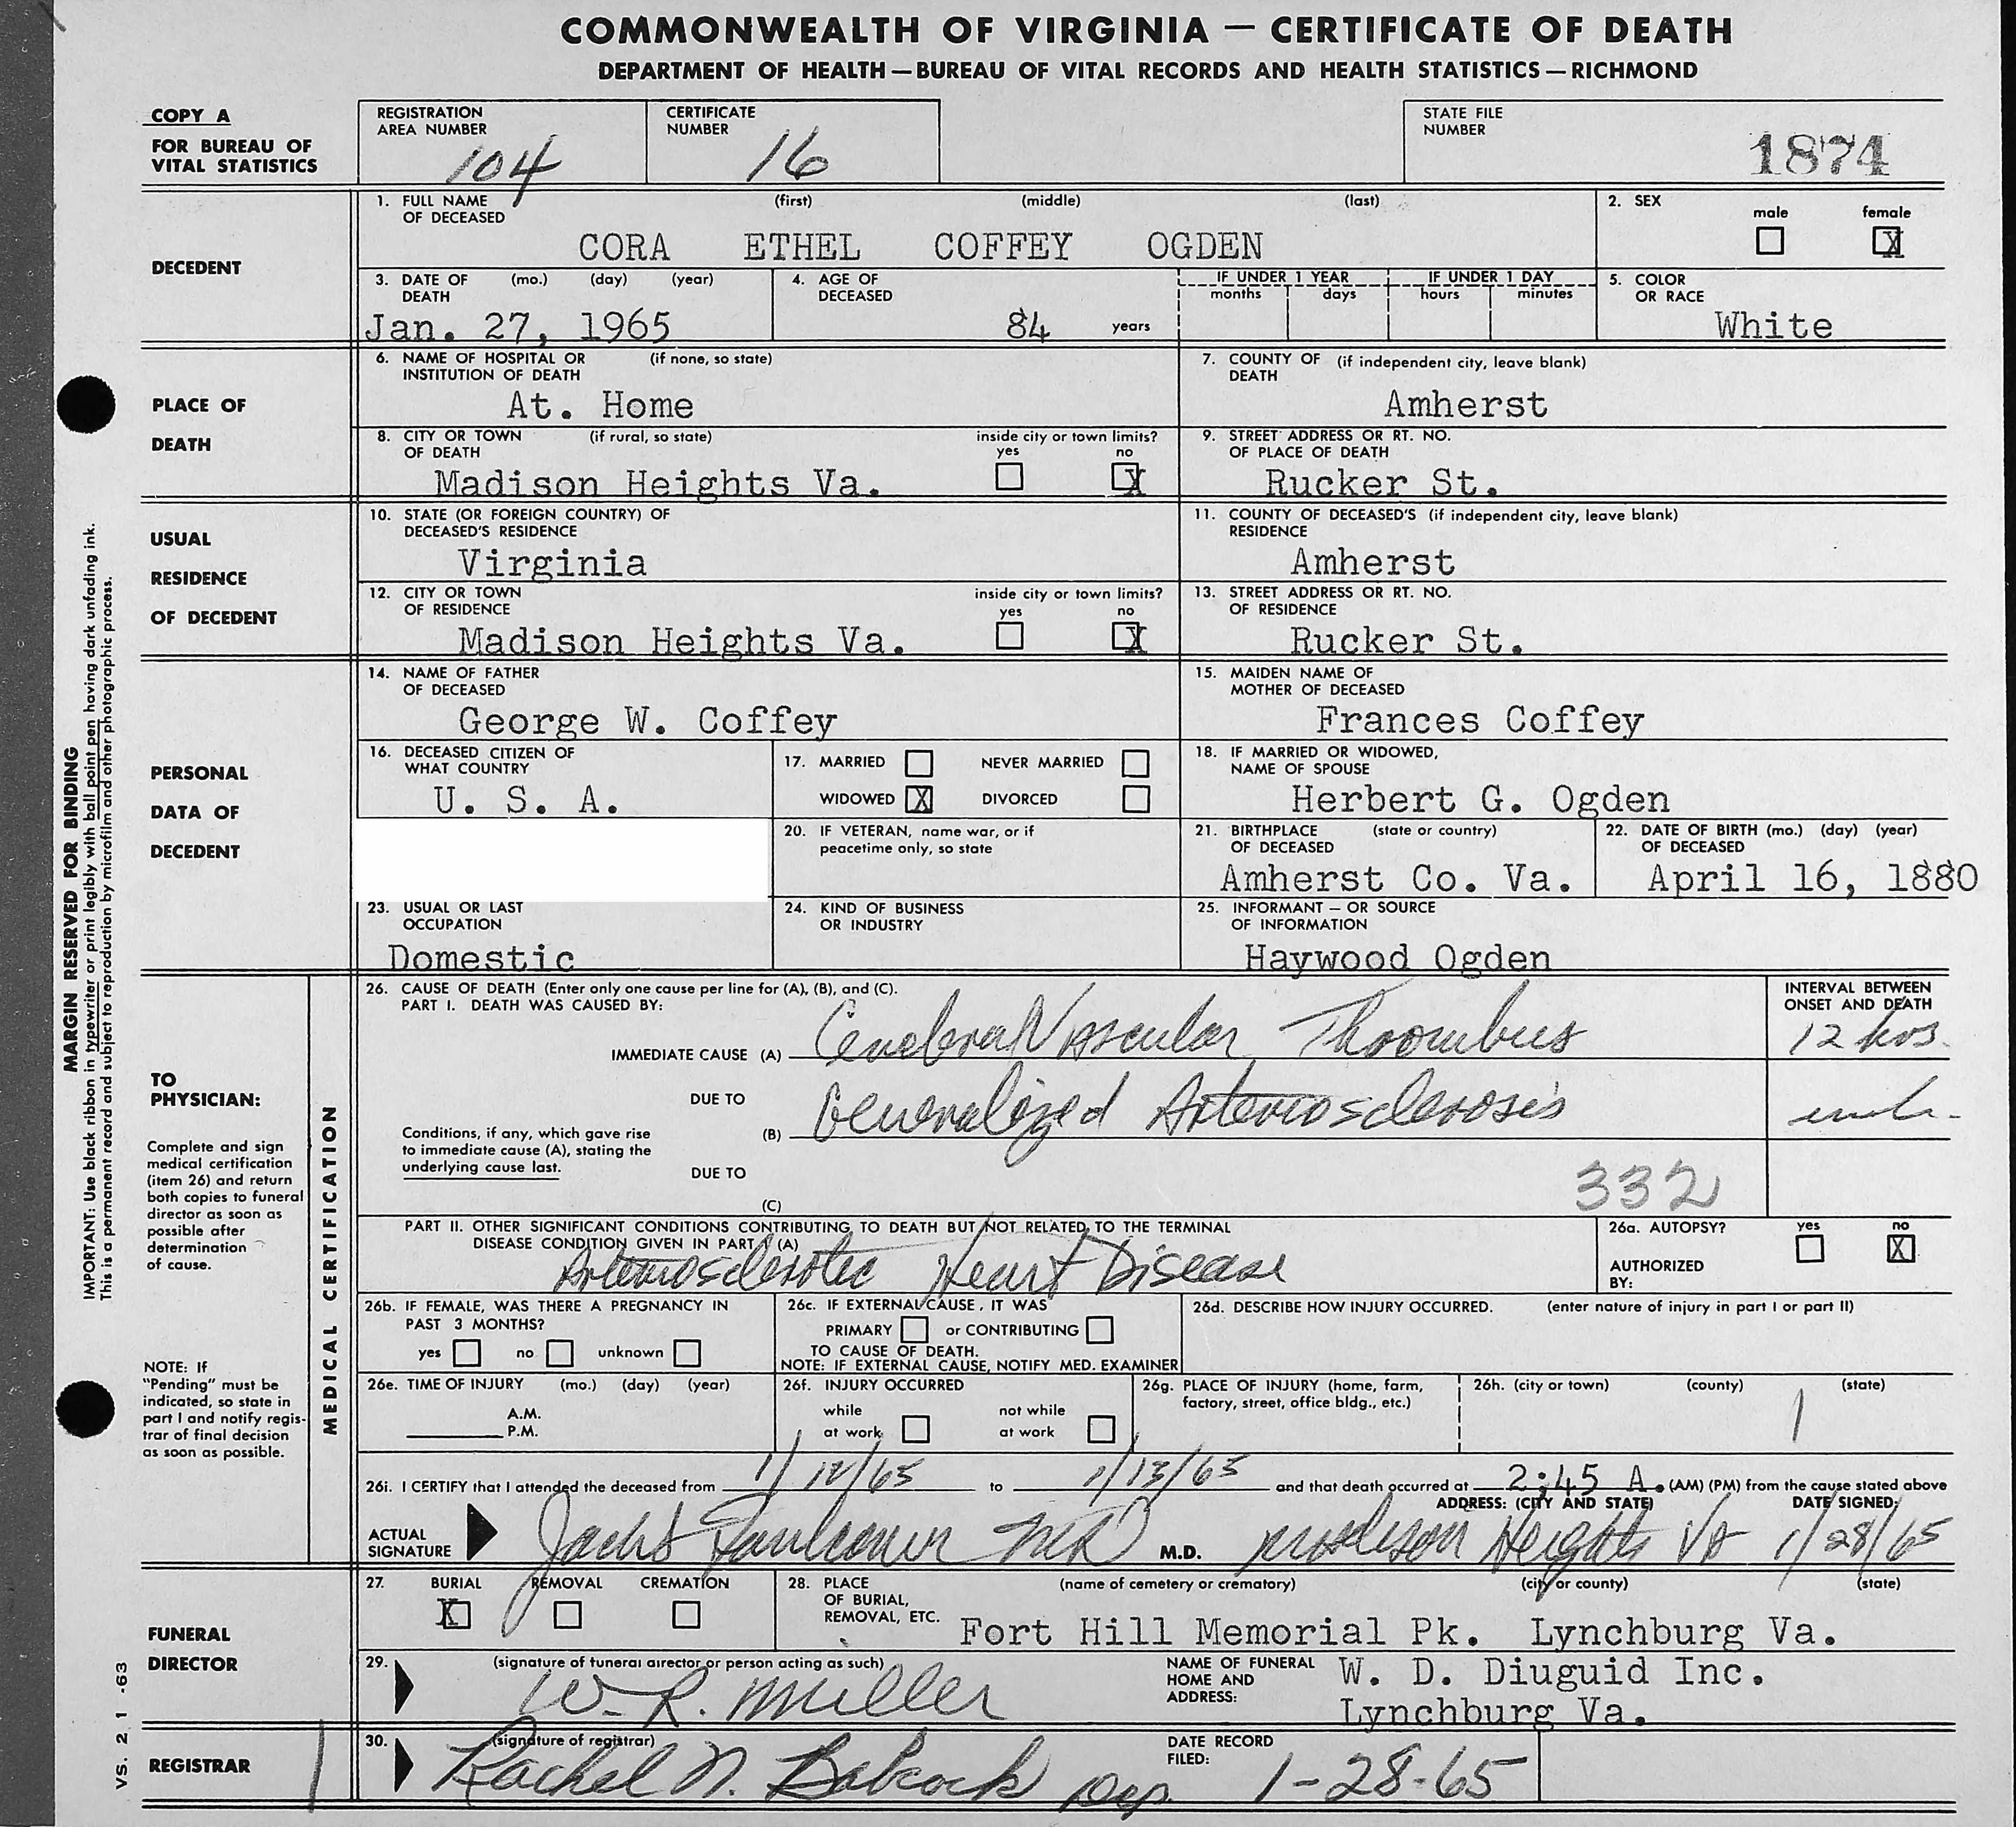 COMMONWEALTH OF VIRGINIA — CERTIFICATE OF DEATH
DEPARTMENT OF HEALTH — BUREAU OF VITAL RECORDS AND HEALTH STATISTICS — RICHMOND
COPY A
FOR BUREAU OF
VITAL STATISTICS
REGISTRATION
AREA NUMBER
104
CERTIFICATE
NUMBER
16
STATE FILE
NUMBER
1874
DECEDENT
1. FULL NAME (first) (middle) (last)
OF DECEASED
CORA ETHEL COFFEY OGDEN
2. SEX
male female
X
3. DATE OF (mo.) (day) (year)
DEATH
Jan. 27, 1965
4. AGE OF
DECEASED
84 years
IF UNDER 1 YEAR IF UNDER 1 DAY
months days hours minutes
5. COLOR
OR RACE
White
PLACE OF
DEATH
6. NAME OF HOSPITAL OR (if none, so state)
INSTITUTION OF DEATH
At. Home
7. COUNTY OF (if independent city, leave blank)
DEATH
Amherst
8. CITY OR TOWN (if rural, so state) inside city or town limits?
OF DEATH yes no
Madison Heights Va. X
9. STREET ADDRESS OR RT. NO.
OF PLACE OF DEATH
Rucker St.
USUAL
RESIDENCE
OF DECEDENT
10. STATE (OR FOREIGN COUNTRY) OF
DECEASED'S RESIDENCE
Virginia
11. COUNTY OF DECEASED'S (if independent city, leave blank)
RESIDENCE
Amherst
12. CITY OR TOWN inside city or town limits?
OF RESIDENCE yes no
Madison Heights Va. X
13. STREET ADDRESS OR RT. NO.
OF RESIDENCE
Rucker St.
PERSONAL
DATA OF
DECEDENT
14. NAME OF FATHER
OF DECEASED
George W. Coffey
15. MAIDEN NAME OF
MOTHER OF DECEASED
Frances Coffey
16. DECEASED CITIZEN OF
WHAT COUNTRY
U. S. A.
17. MARRIED NEVER MARRIED
WIDOWED X DIVORCED
18. IF MARRIED OR WIDOWED,
NAME OF SPOUSE
Herbert G. Ogden
20. IF VETERAN, name war, or if
peacetime only, so state
21. BIRTHPLACE (state or country)
OF DECEASED
Amherst Co. Va.
22. DATE OF BIRTH (mo.) (day) (year)
OF DECEASED
April 16, 1880
23. USUAL OR LAST
OCCUPATION
Domestic
24. KIND OF BUSINESS
OR INDUSTRY
25. INFORMANT — OR SOURCE
OF INFORMATION
Haywood Ogden
MARGIN RESERVED FOR BINDING
IMPORTANT: Use black ribbon in typewriter or print legibly with ball point pen having dark unfading ink.
This is a permanent record and subject to reproduction by microfilm and other photographic process.
TO
PHYSICIAN:
Complete and sign
medical certification
(item 26) and return
both copies to funeral
director as soon as
possible after
determination
of cause.
NOTE: If
"Pending" must be
indicated, so state in
part I and notify regis-
trar of final decision
as soon as possible.
MEDICAL CERTIFICATION
26. CAUSE OF DEATH (Enter only one cause per line for (A), (B), and (C).
PART I. DEATH WAS CAUSED BY:
INTERVAL BETWEEN
ONSET AND DEATH
IMMEDIATE CAUSE (A) Cerebral Vascular Thrombus 12 hrs.
DUE TO
(B) Generalized Arteriosclerosis
Conditions, if any, which gave rise
to immediate cause (A), stating the
underlying cause last.
DUE TO
(C)
332
PART II. OTHER SIGNIFICANT CONDITIONS CONTRIBUTING TO DEATH BUT NOT RELATED TO THE TERMINAL
DISEASE CONDITION GIVEN IN PART I (A)
Arteriosclerotic Heart Disease
26a. AUTOPSY? yes no
X
AUTHORIZED
BY:
26b. IF FEMALE, WAS THERE A PREGNANCY IN
PAST 3 MONTHS?
yes no unknown
26c. IF EXTERNAL CAUSE, IT WAS
PRIMARY or CONTRIBUTING
TO CAUSE OF DEATH.
NOTE: IF EXTERNAL CAUSE, NOTIFY MED. EXAMINER
26d. DESCRIBE HOW INJURY OCCURRED. (enter nature of injury in part I or part II)
26e. TIME OF INJURY (mo.) (day) (year)
A.M.
P.M.
26f. INJURY OCCURRED
while not while
at work at work
26g. PLACE OF INJURY (home, farm,
factory, street, office bldg., etc.)
26h. (city or town) (county) (state)
1
26i. I CERTIFY that I attended the deceased from 1/12/65 to 1/13/65 and that death occurred at 2:45 A. (AM) (PM) from the cause stated above
ADDRESS: (CITY AND STATE) DATE SIGNED
ACTUAL
SIGNATURE
Faulconer MD M.D. Madison Heights Va 1/28/65
FUNERAL
DIRECTOR
27. BURIAL REMOVAL CREMATION
X
28. PLACE (name of cemetery or crematory) (city or county) (state)
OF BURIAL,
REMOVAL, ETC.
Fort Hill Memorial Pk. Lynchburg Va.
29. (signature of funeral director or person acting as such)
W. R. Miller
NAME OF FUNERAL
HOME AND
ADDRESS:
W. D. Diuguid Inc.
Lynchburg Va.
REGISTRAR
30. (signature of registrar)
Rachel N. Babcock Dep.
DATE RECORD
FILED:
1-28-65
VS. 2 1 -63